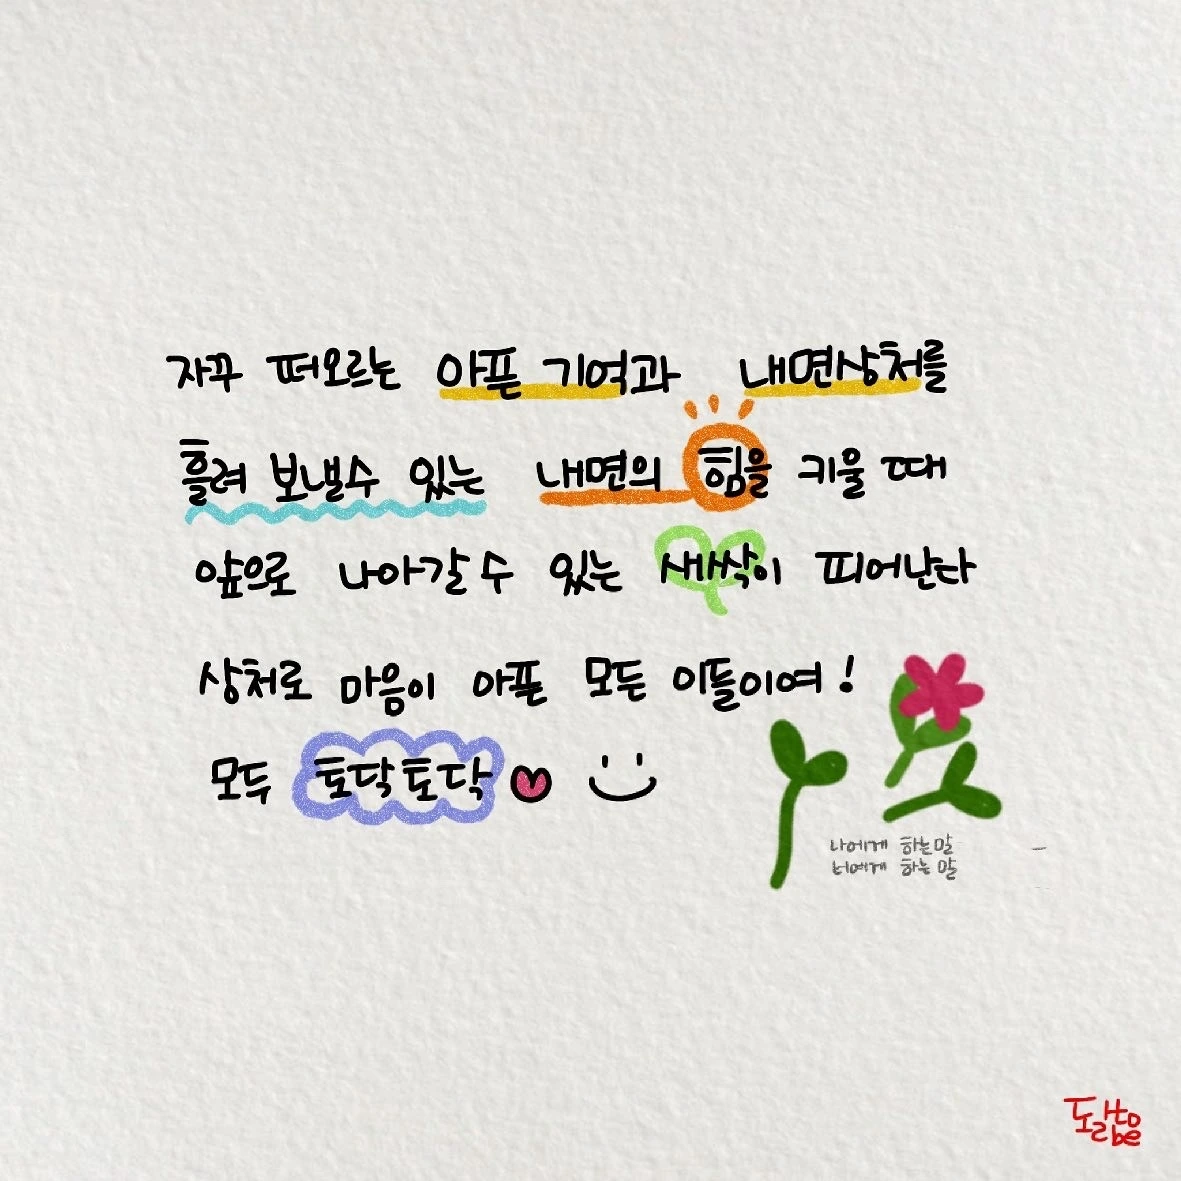 자꾸 떠오르는 아픈 기억과 내면상처를
흘려 보낼수 있는 내면의 힘을 키울 때
앞으로 나아갈 수 있는 새싹이 피어난다
상처로 마음이 아픈 모든 이들이여!
모두 토닥토닥
나에게 하는말
너에게 하는 말
to
be